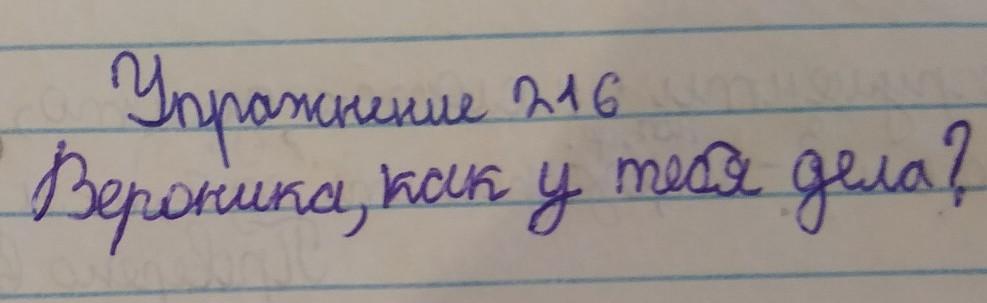 Упражнение 216
Вероника, как у тебя дела?